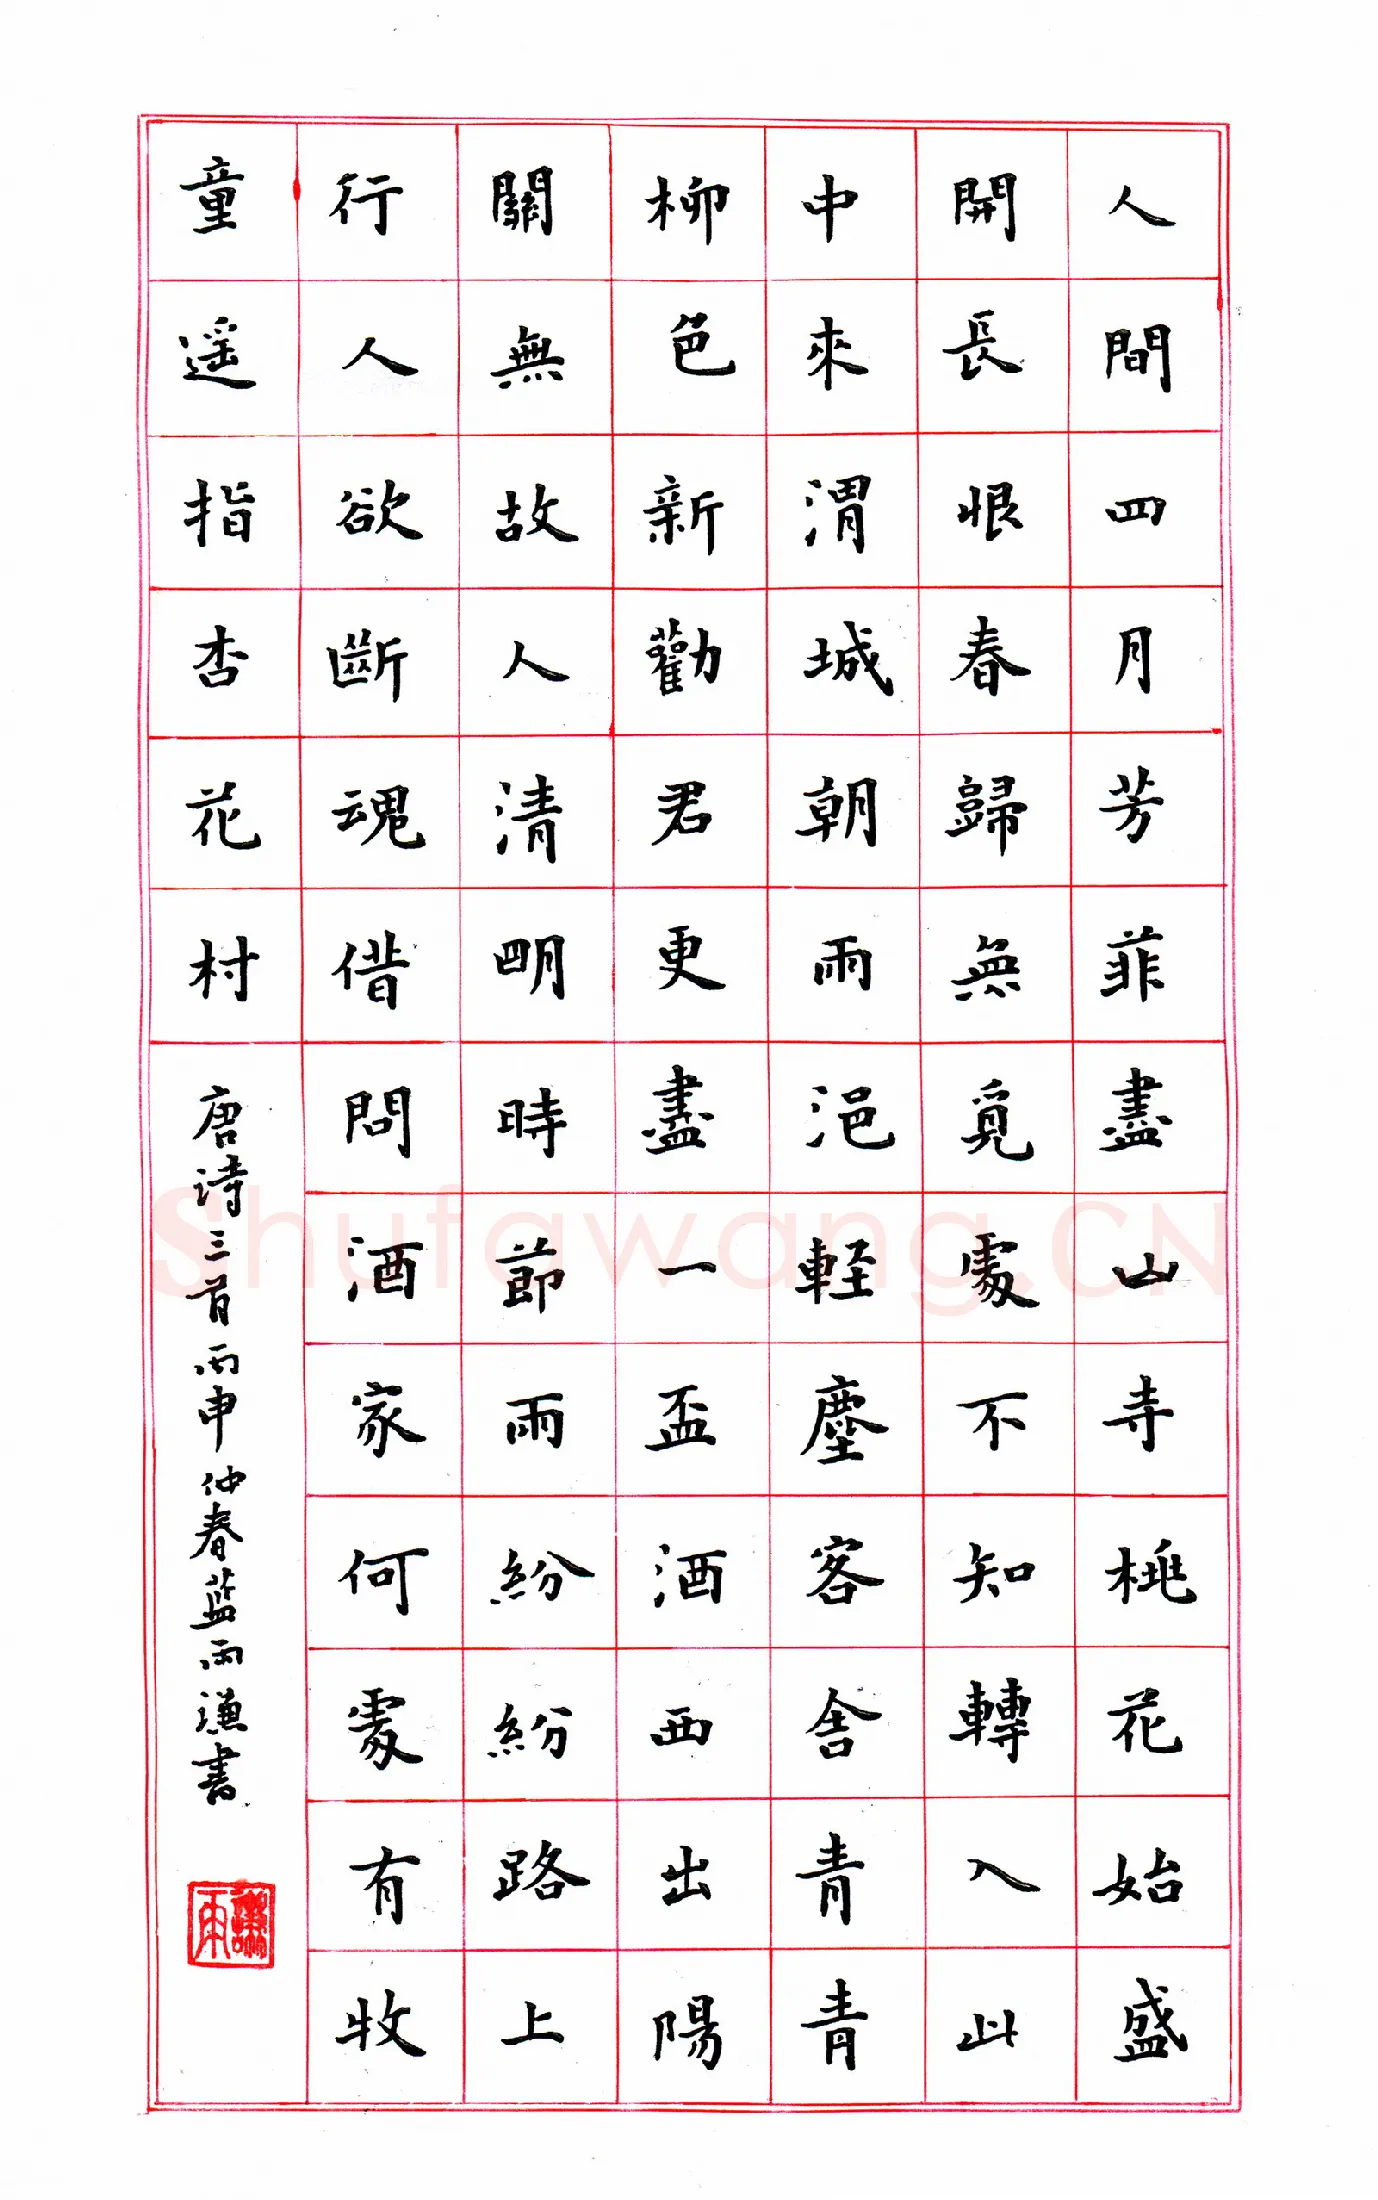 人間四月芳菲盡山寺桃花始盛
開長恨春歸無覓處不知轉入此
中來渭城朝雨浥輕塵客舍青青
柳色新勸君更盡一盃酒西出陽
關無故人清明時節雨紛紛路上
行人欲斷魂借問酒家何處有牧
童遥指杏花村
唐诗三首丙申仲春蓝雨谦書
謙雨
Shufawang.CN